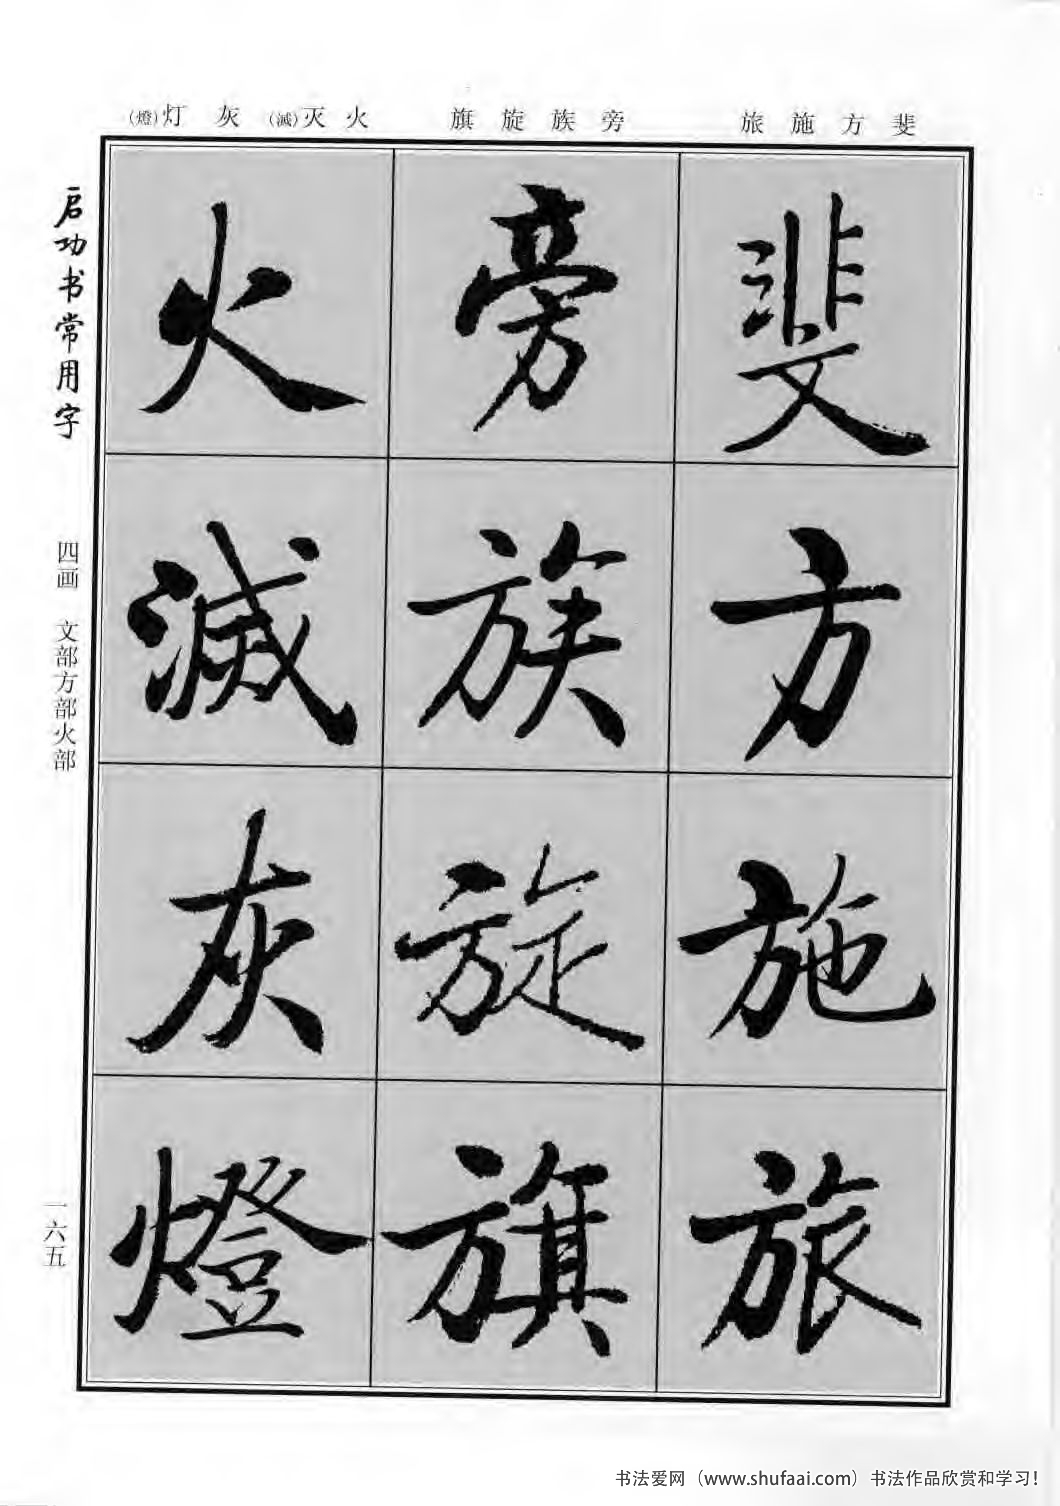 斐方施旅
旁族旋旗
火灭(滅)灰灯(燈)
斐
方
施
旅
旁
族
旋
旗
火
滅
灰
燈
启功书常用字
四画 文部方部火部
一六五
书法爱网（www.shufaai.com）书法作品欣赏和学习！